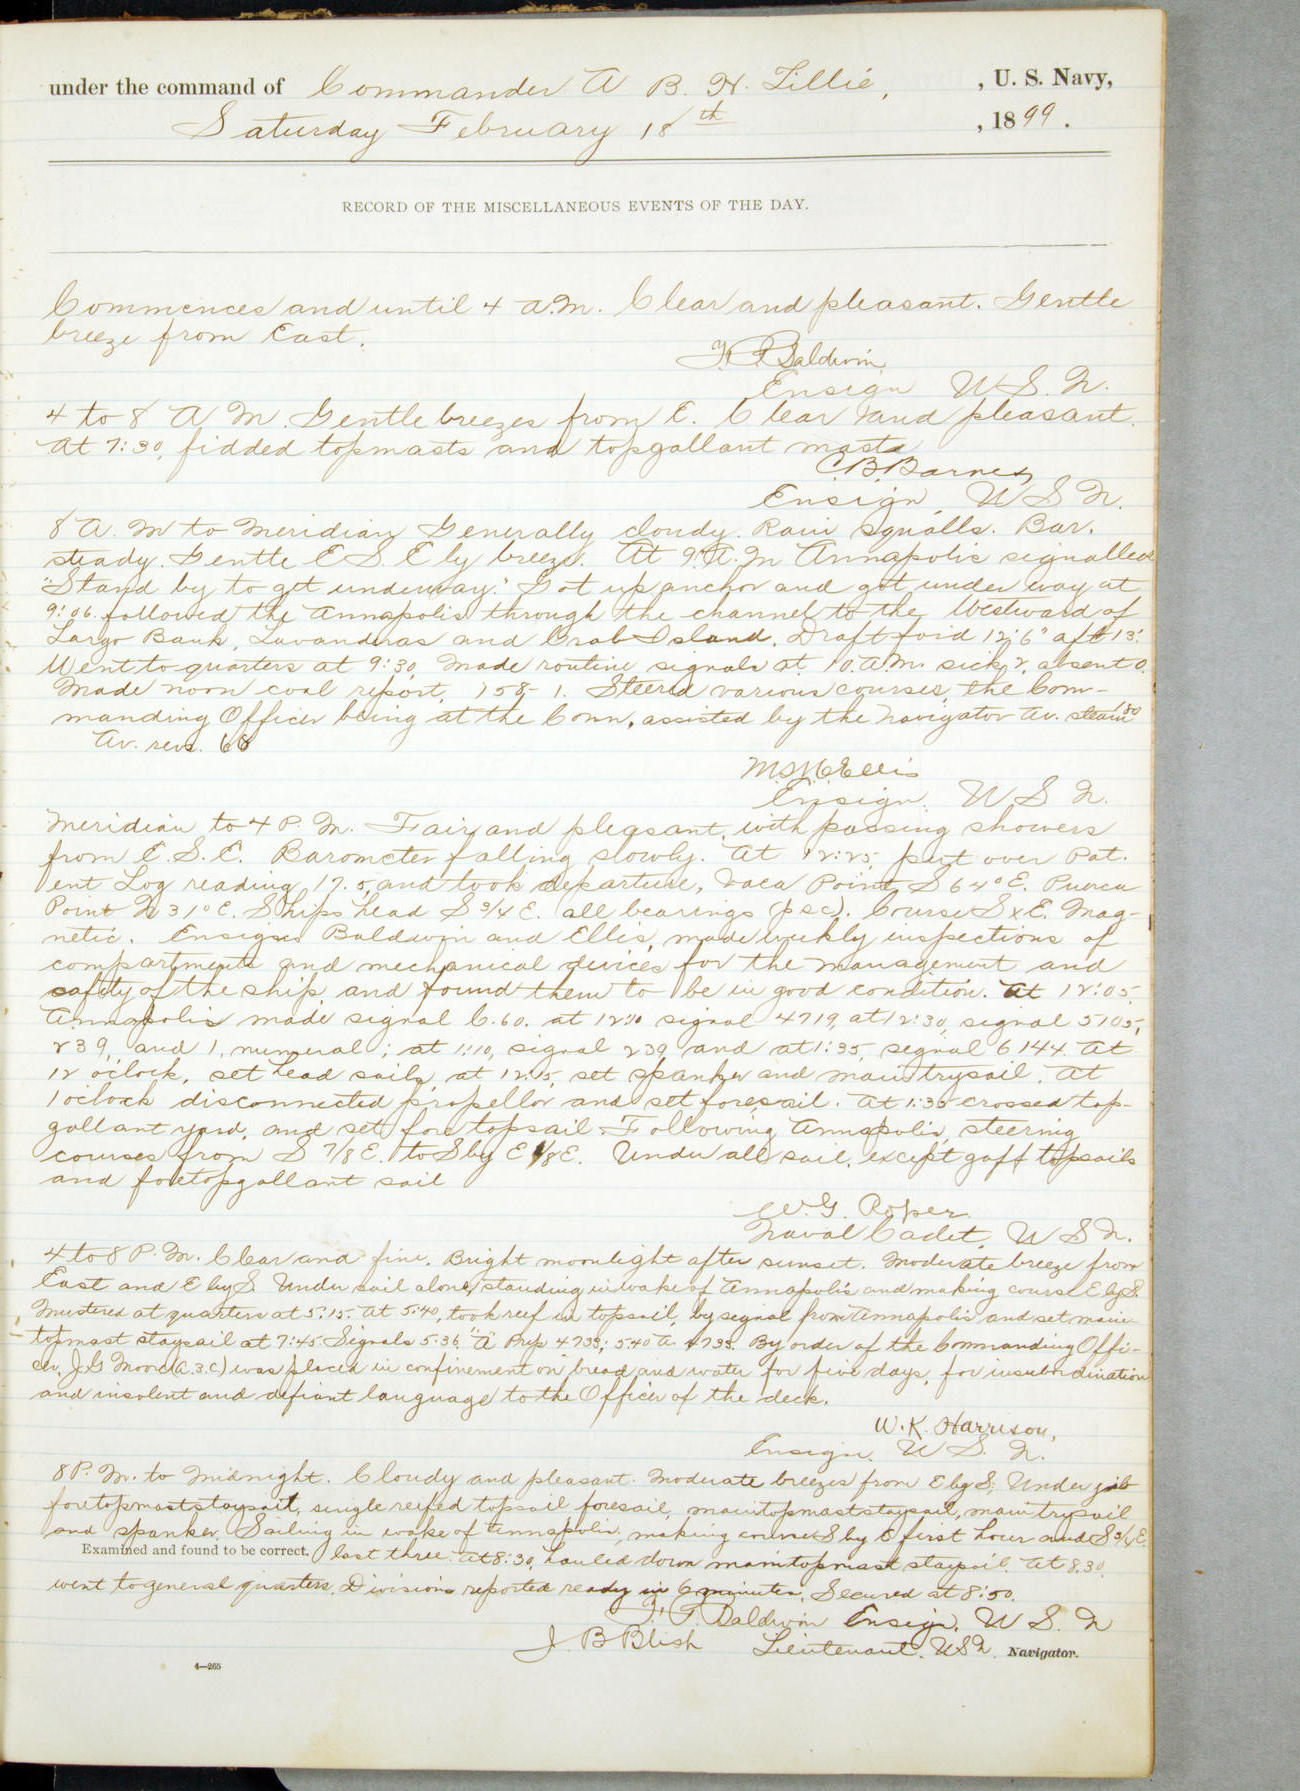 under the command of Commander A B. H. Lillie, , U. S. Navy,
Saturday February 18th , 1899.
RECORD OF THE MISCELLANEOUS EVENTS OF THE DAY.
Commences and until 4 A.M. Clear and pleasant. Gentle
breeze from East.
F. P. Baldwin
Ensign U S. N.
4 to 8 A M. Gentle breezes from E. Clear and pleasant.
At 7:30, fidded topmasts and topgallant masts
C. B. Barnes
Ensign, U S N.
8 A. M to Meridian Generally cloudy. Rain squalls. Bar.
steady. Gentle E S. E ly breeze. At 9 A.M Annapolis signalled
"Stand by to get underway." Got up anchor and got under way at
9:06. followed the Annapolis through the channel to the Westward of
Largo Bank, Lavandras and Crab Island. Draft for'd 12' 6" aft 13'.
Went to quarters at 9:30, Made routine signals at 10. A.M. sick 2, absent 0.
Made noon coal report, 158 - 1. Steered various courses, the Com-
manding Officer being at the Conn, assisted by the Navigator Av. steam 80
Av. revs. 68
M. McC Ellis
Ensign. U S N.
Meridian to 4 P. M. Fair and pleasant, with passing showers
from E. S. E. Barometer falling slowly. At 12:25, put over Pat.
ent Log reading 17.5, and took departure, Vaca Point S 64° E. Puerca
Point N 31° E. Ships head S 3/4 E. all bearings (p s c). Course S x E. Mag-
netic. Ensigns Baldwin and Ellis, made weekly inspections of
compartments and mechanical devices for the management and
safety of the ship and found them to be in good condition. At 12:05.
Annapolis made signal C. 60. at 12:10 signal 4719, at 12:30, signal 5105,
239, and 1, numeral; at 1:10, signal 239 and at 1:35, signal 6144. At
12 o'clock, set head sails, at 12:15, set spanker and main trysail. At
1 o'clock disconnected propellor and set foresail. At 1:35 crossed top-
gallant yard, and set fore topsail. Following Annapolis, steering
courses from S 7/8 E. to S by E 1/8 E. Under all sail, except gaff topsails
and foretopgallant sail
W. G. Roper
Naval Cadet, U S N.
4 to 8 P. M. Clear and fine. Bright moonlight after sunset. Moderate breeze from
East and E by S. Under sail alone, standing in wake of Annapolis and making course E by S.
Mustered at quarters at 5:15. At 5:40, took reef in topsail, by signal from Annapolis and set main-
topmast staysail at 7:45 Signals 5:36, "A" Prep 4733; 5:40 A. 4733. By order of the Commanding Offi-
cer, J. G Moore (A. 3. C) was placed in confinement on bread and water for five days, for insubordination
and insolent and defiant language to the Officer of the deck.
W. K. Harrison,
Ensign. U S. N.
8 P. M. to Midnight. Cloudy and pleasant. Moderate breezes from E by S, Under jib
foretopmast staysail, single reefed topsail foresail, maintopmast staysail, main trysail
and spanker. Sailing in wake of Annapolis, making courses S by E first hour and S 3/4 E.
Examined and found to be correct. last three. At 8:30, hauled down maintopmast staysail. At 8.30.
went to general quarters. Divisions reported ready in 6 minutes, Secured at 8:50.
F. P. Baldwin Ensign. U S. N
J. B Blish Lieutenant. U S N. Navigator.
4—265